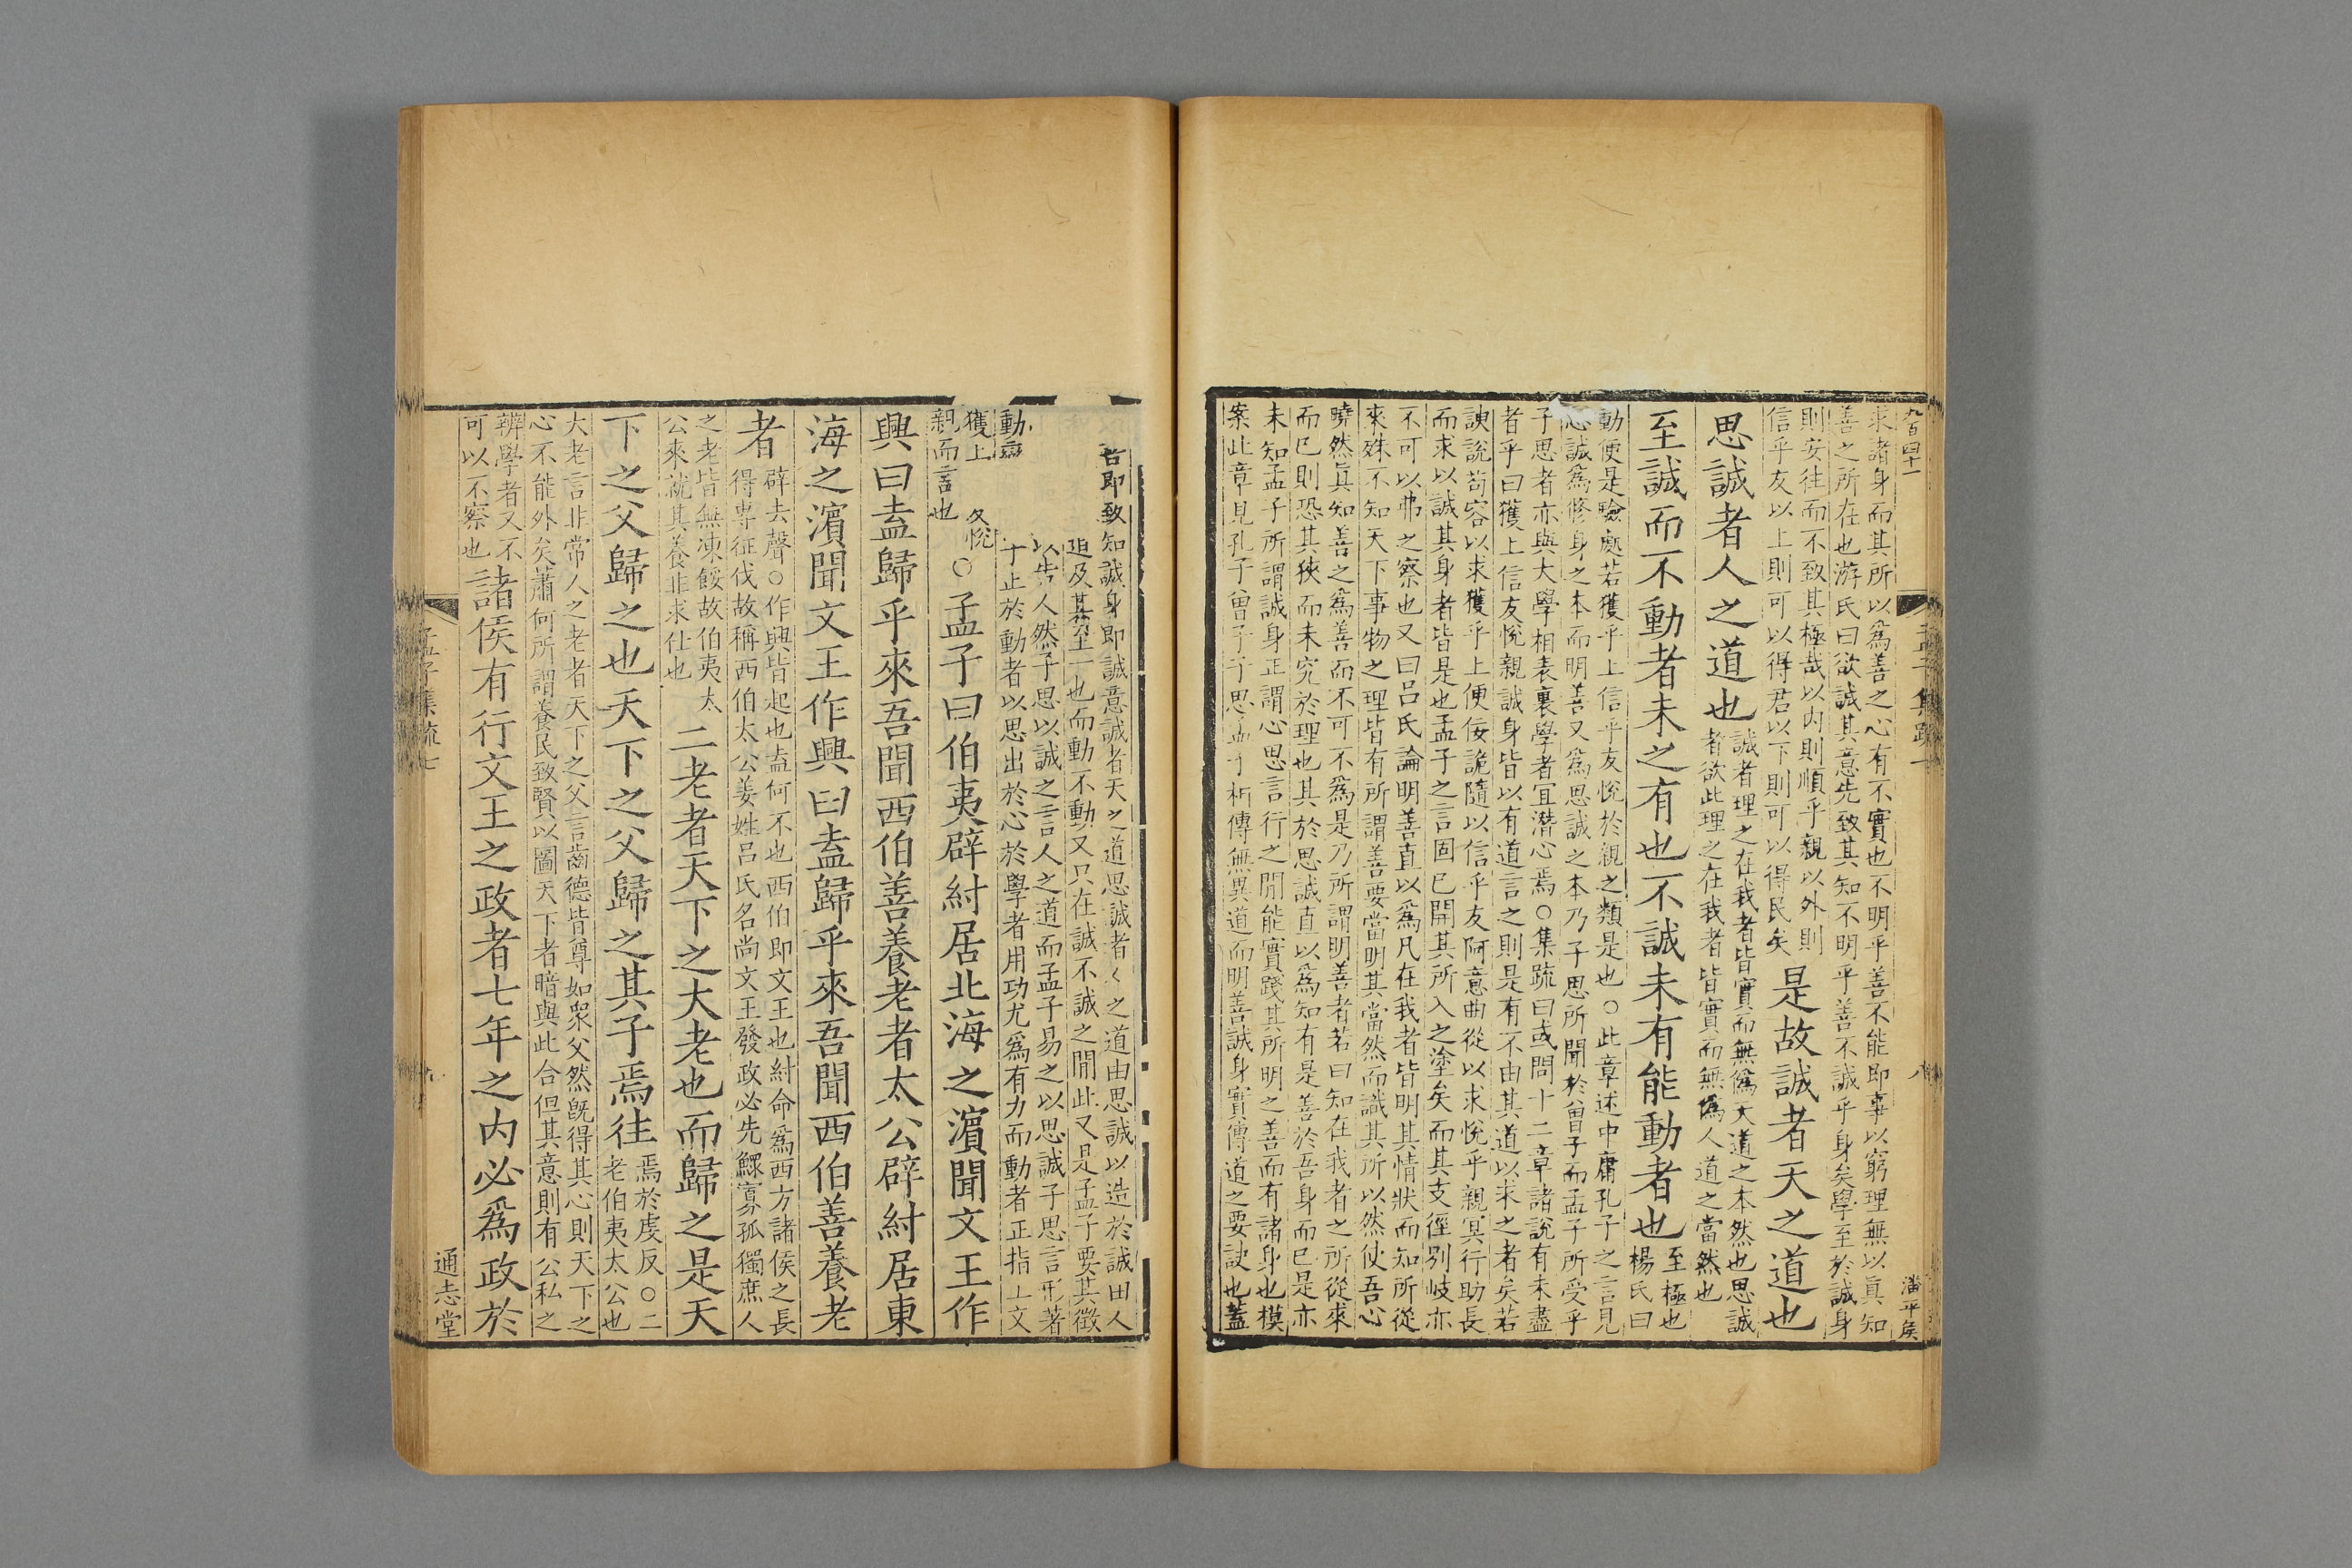 九百四十一
潘平侯
求諸身而其所以爲善之心有不實也不明乎善不能即事以窮理無以眞知
善之所在也游氏曰欲誠其意先致其知不明乎善不誠乎身矣學至於誠身
則安往而不致其極哉以内則順乎親以外則
信乎友以上則可以得君以下則可以得民矣
是故誠者天之道也
思誠者人之道也
誠者理之在我者皆實而無僞天道之本然也思誠
者欲此理之在我者皆實而無僞人道之當然也
至誠而不動者未之有也不誠未有能動者也
至極也
楊氏曰
動便是驗處若獲乎上信乎友悅於親之類是也○此章述中庸孔子之言見
思誠爲修身之本而明善又爲思誠之本乃子思所聞於曾子而孟子所受乎
子思者亦與大學相表裏學者宜潛心焉○集疏曰或問十二章諸說有未盡
者乎曰獲上信友悅親誠身皆以有道言之則是有不由其道以求之者矣若
諛說苟容以求獲乎上便佞詭隨以信乎友阿意曲從以求悅乎親冥行助長
而求以誠其身者皆是也孟子之言固已開其所入之塗矣而其支徑别岐亦
不可以弗之察也又曰呂氏論明善直以爲凡在我者皆明其情狀而知所從
來殊不知天下事物之理皆有所謂善要當明其當然而識其所以然使吾心
曉然眞知善之爲善而不可不爲是乃所謂明善者若曰知在我者之所從來
而已則恐其狹而未究於理也其於思誠直以爲知有是善於吾身而已是亦
未知孟子所謂誠身正謂心思言行之閒能實踐其所明之善而有諸身也模
案此章見孔子曾子子思孟子相傳無異道而明善誠身實傳道之要訣也蓋
即致知誠身即誠意誠者天之道思誠者人之道由思誠以造於誠由人
及其至一也而動不動又只在誠不誠之閒此又是孟子要其徵
以告人然子思以誠之言人之道而孟子易之以思誠子思言形著
動
于止於動者以思出於心於學者用功尤爲有力而動者正指上文
獲上
悅
親而言也
○孟子曰伯夷辟紂居北海之濱聞文王作
興曰盍歸乎來吾聞西伯善養老者太公辟紂居東
海之濱聞文王作興曰盍歸乎來吾聞西伯善養老
者
辟去聲○作興皆起也盍何不也西伯即文王也紂命爲西方諸侯之長
得專征伐故稱西伯太公姜姓呂氏名尚文王發政必先鰥寡孤獨庶人
之老皆無凍餒故伯夷太
公來就其養非求仕也
二老者天下之大老也而歸之是天
下之父歸之也天下之父歸之其子焉往
焉於虔反○二
老伯夷太公也
大老言非常人之老者天下之父言齒德皆尊如衆父然旣得其心則天下之
心不能外矣蕭何所謂養民致賢以圖天下者暗與此合但其意則有公私之
辨學者又不
可以不察也
諸侯有行文王之政者七年之内必爲政於
孟子集疏七
九
通志堂